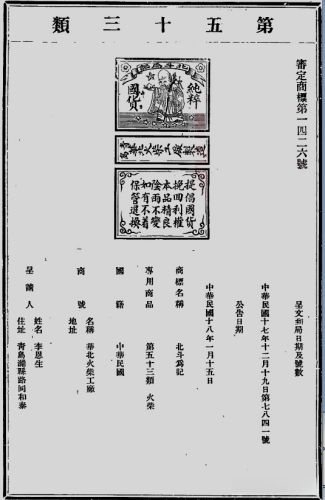 第五十三類
審定商標第一四二六號
北斗為記
純粹
國貨
青島華北火柴工廠製造
提倡國貨
挽回利權
本品精良
陰雨不變
如有不着
保管退換
呈文到局日期及號數
中華民國十七年十二月十九日第七八四一號
公告日期
中華民國十八年一月十五日
商標名稱 北斗為記
專用商品 第五十三類 火柴
國籍 中華民國
商號 名稱 華北火柴工廠
地址
呈請人 姓名 李恩生
住址 青島滄縣路同和泰